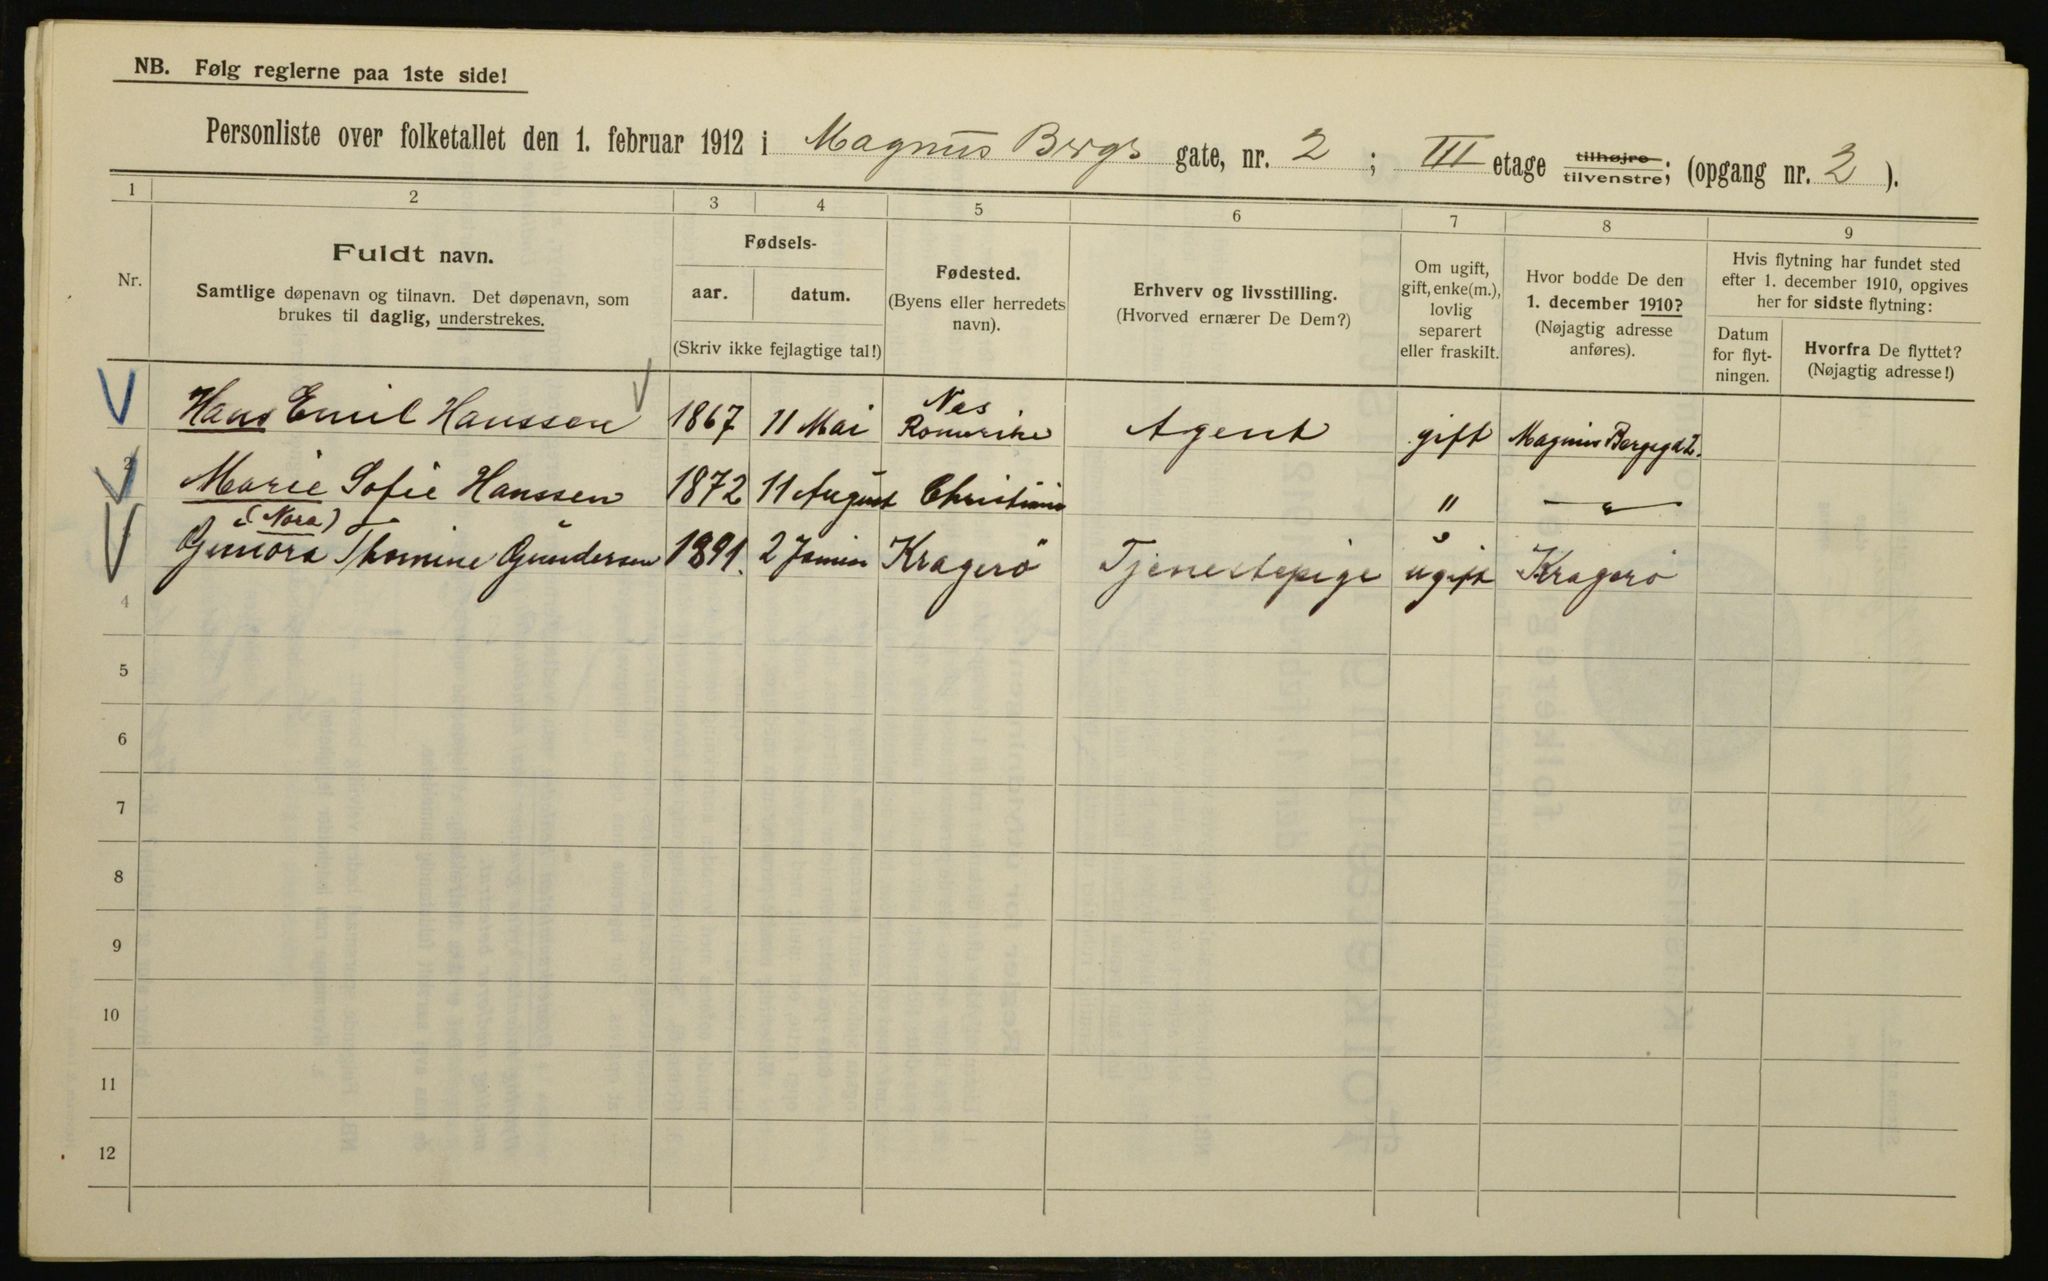 NB. Følg reglerne paa 1ste side!
Personliste over folketallet den 1. februar 1912 i Magnus Bergs gate, nr. 2 ; III etage tilhøjre tilvenstre; (opgang nr. 2 ).
1 2 3 4 5 6 7 8 9
Nr.
Fuldt navn.
Samtlige døpenavn og tilnavn. Det døpenavn, som
brukes til daglig, understrekes.
Fødsels-
aar. datum.
(Skriv ikke fejlagtige tal!)
Fødested.
(Byens eller herredets
navn).
Erhverv og livsstilling.
(Hvorved ernærer De Dem?)
Om ugift,
gift, enke(m.),
lovlig
separert
eller fraskilt.
Hvor bodde De den
1. december 1910?
(Nøjagtig adresse
anføres).
Hvis flytning har fundet sted
efter 1. december 1910, opgives
her for sidste flytning:
Datum
for flyt-
ningen.
Hvorfra De flyttet?
(Nøjagtig adresse!)
Hans Emil Hanssen 1867 11 Mai Nes Romerike Agent gift Magnus Bergsgd 2.
2 Marie Sofie Hanssen 1872 11 August Christiania " — " —
(Nora)
Gunora Thomine Gundersen 1891. 2 Januar Kragerö Tjenestepige ugift Kragerö
4
5
6
7
8
9
10
11
12